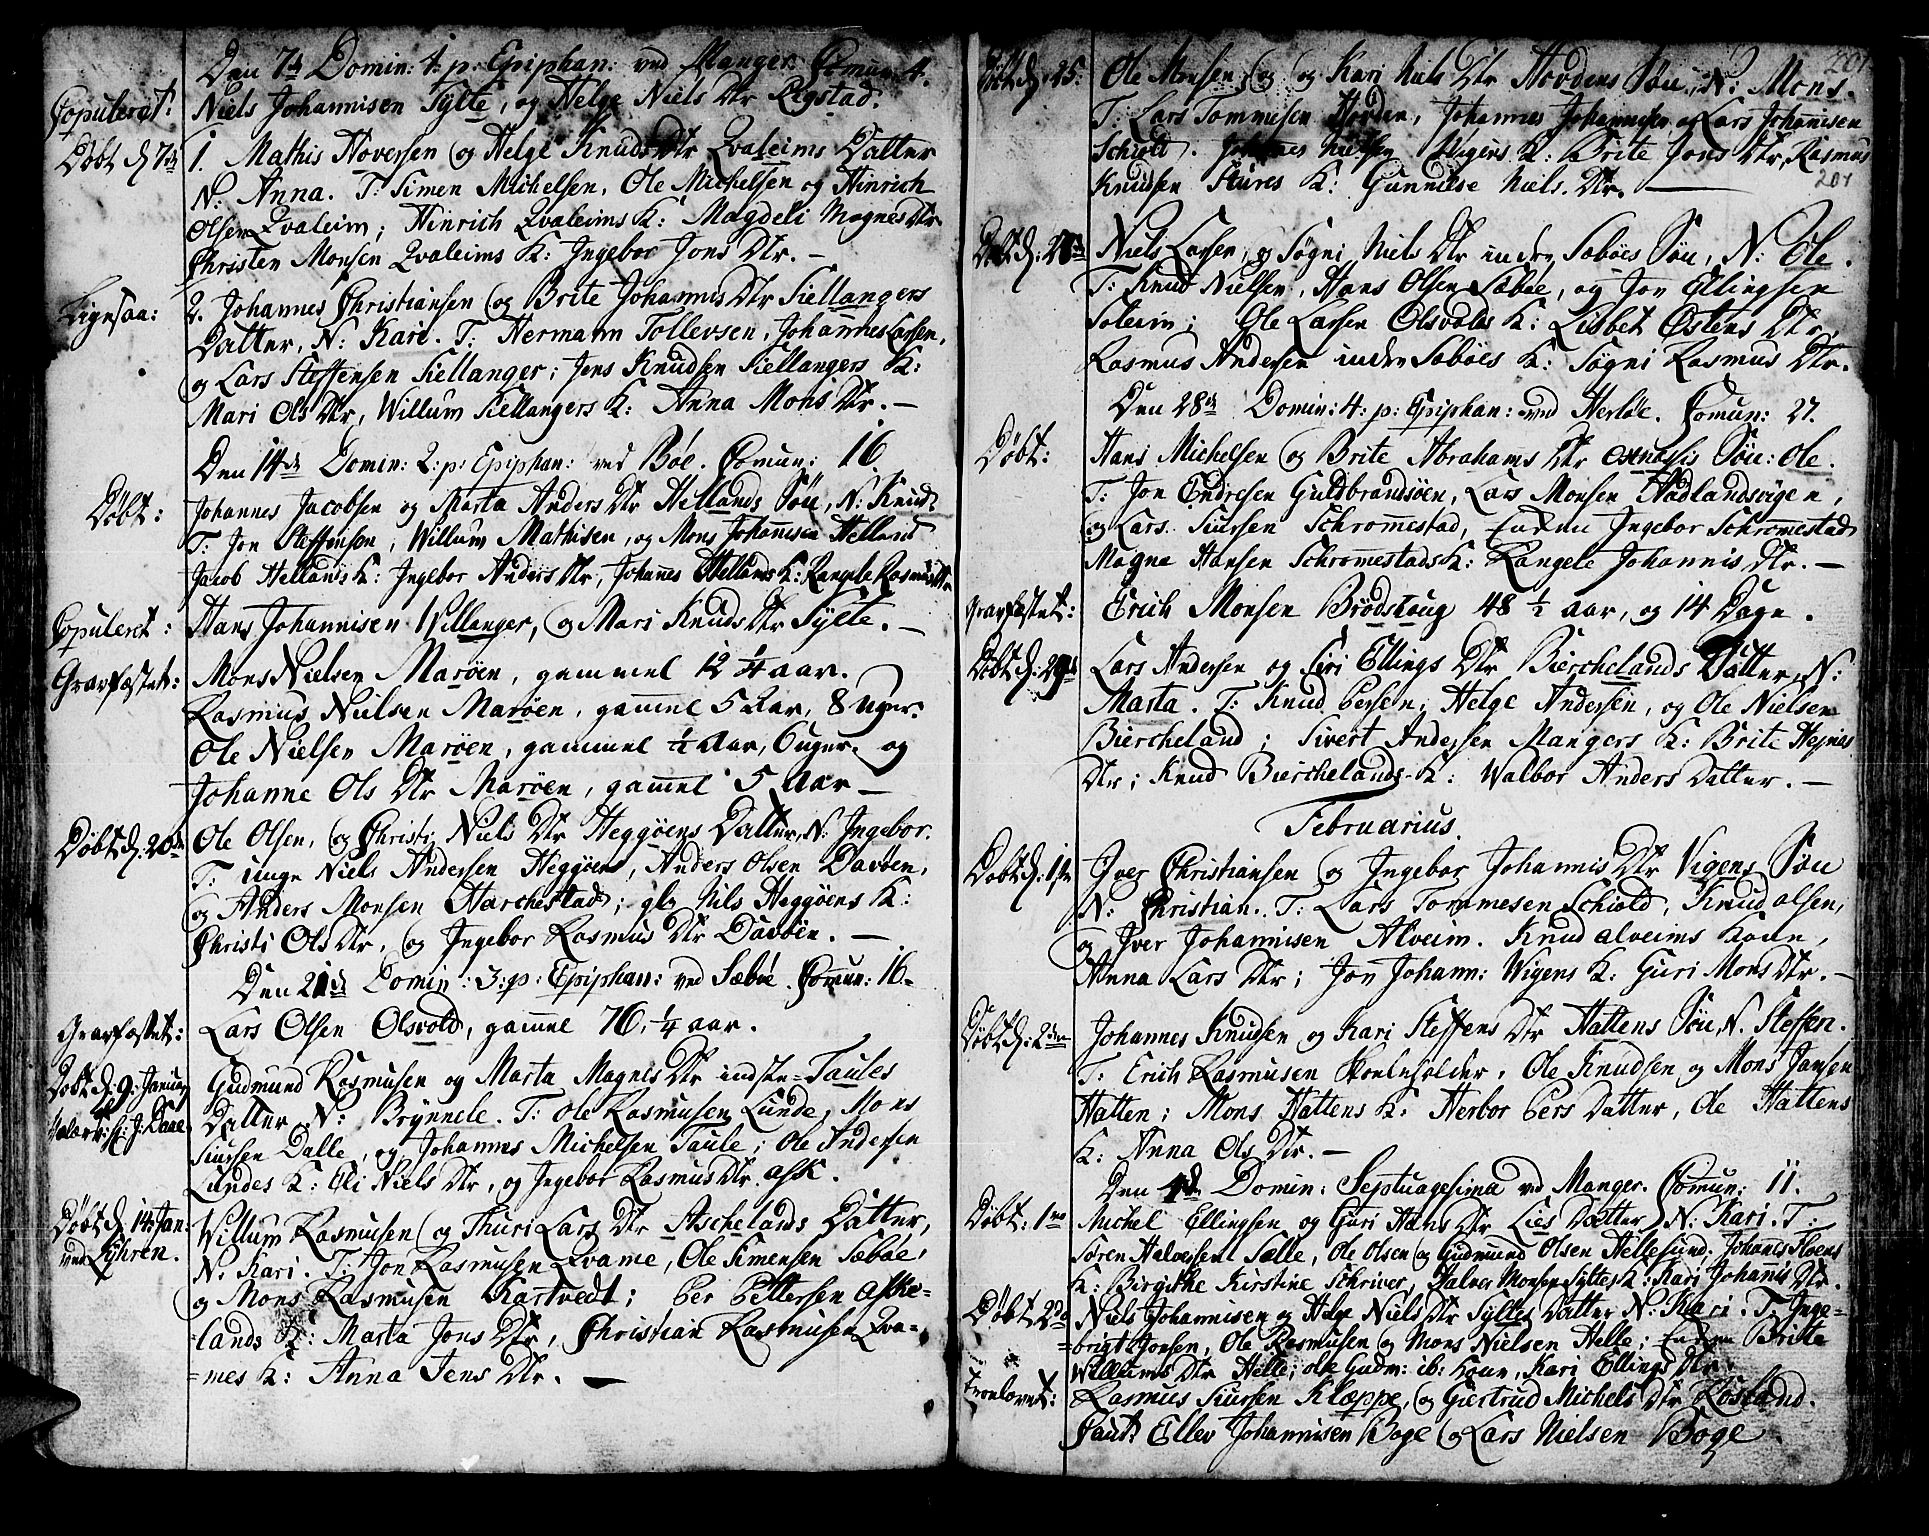 Den 7de Domin: 1. p: Epiphan: ved Manger. Comun: 4.
Copuleret: Niels Johannisen Sylte, og Helge Niels Dtr Rigstad.
Døbt d: 7de 1. Mathis Hoversen og Helge Knuds Dtr Qvaleims Datter
N: Anna. T: Simen Michelsen, Ole Michelsen og Hinrich
Olsen Qvaleim; Hinrich Qvaleims K: Magdeli Magnes Dtr
Christen Monsen Qvaleims K: Ingebor Jons Dtr. –
Ligesaa: 2. Johannes Christiansen og Brite Johannis Dtr Siellangers
Datter, N: Kari. T: Hermann Tollevsen, Johannes Larsen,
og Lars Steffensen Siellanger; Jens Knudsen Siellangers K:
Mari Ols Dtr, Willum Siellangers K: Anna Mons Dtr. –
Den 14de Domin: 2: p: Epiphan: ved Bøe. Comun: 16.
Døbt: Johannes Jacobsen og Marta Anders Dtr Hellands Søn, N: Knud
T: Jon Steffensen, Willum Mathisen, og Mons Johannisen Helland
Jacob Hellands K: Ingebor Anders Dtr, Johannes Hellands K: Rangele Rasmus Dtr
Copuleret: Hans Johannisen Willanger, og Mari Knuds Dtr Sylte. –
Gravfæstet: Mons Nielsen Marøen, gammel 12 1/4 aar.
Rasmus Nielsen Marøen, gammel 5 Aar, 8 uger.
Ole Nielsen Marøen, gammel 1/2 Aar, 6 uger. og
Johanne Ols Dtr Marøen, gammel 5 Aar –
Døbt d: 20de Ole Olsen, og Christi Niels Dtr Heggøens Datter, N: Ingebor.
T: unge Niels Andersen Heggøen, Anders Olsen Davøen,
og Anders Monsen Harchestad; gle Nils Heggøens K:
Christi Ols Dtr, og Ingebor Rasmus Dtr Davøen. –
Den 21de Domin: 3: p: Epiphan: ved Sæbøe. Comun: 16.
Gravfæstet: Lars Olsen Olsvold, gammel 76 1/4 aar.
Døbt d: 9: Januar Gudmund Rasmusen og Marta Magnes Dtr indste Taules
Datter, N: Brynnele. T: Ole Rasmusen Lunde, Mons
Siursen Dalle, og Johannes Michelsen Taule; Ole Andersen
Lundes K: Eli Niels Dtr, og Ingebor Rasmus Dtr Ask.
Døbt d: 14: Jan: Willum Rasmusen og Thuri Lars Dtr Aschelands Datter,
ved Kyhren. N: Kari. T: Jon Rasmusen Qvame, Ole Simensen Sæbøe,
og Mons Rasmusen Kartvedt; Per Pettersen Aske-
-lands K: Marta Jons Dtr, Christian Rasmusen Qva-
-mes K: Anna Jens Dtr. –
201
Døbt d: 25: Ole Monsen og Kari Niels Dtr Hordens Søn, N: Mons.
T: Lars Tommesen Horden, Johannes Johannisen og Lars Johanisen
Schiold. Johannes Nielsen Wigens K: Brite Jons Dtr, Rasmus
Knudsen Stures K: Gunnilde Niels Dtr. –
201
Døbt d: 26de Niels Larsen, og Søgni Niels Dtr indre Sæbøes Søn, N: Ole.
T: Knud Nielsen, Hans Olsen Sæbøe, og Jon Ellingsen
Soleim; Ole Larsen Olsvolds K: Lisbet Østens Dtr,
Rasmus Andersen indre Sæbøes K: Søgni Rasmus Dtr.
Den 28de Domin: 4: p: Epiphan: ved Herløe. Comun: 27.
Døbt: Hans Michelsen og Brite Abrahams Dtr Søn: Ole.
T: Jon Endresen Guldbrandsøen, Lars Monsen Hadlandsvigen,
og Lars Siursen Schromestad, Enken Ingebor Schromestad
Magne Hansen Schromestads K: Rangele Johannis Dtr. –
Gravfæstet: Erich Monsen Brødstoug 48 1/2 aar, og 14 Dage.
Døbt d: 29de Lars Andersen og Siri Ellings Dtr Bierchelands Datter, N:
Marta. T: Knud Persen, Helge Andersen, og Ole Nielsen
Biercheland; Sivert Andersen Mangers K: Brite Hejnes
Dtr; Knud Bierchelands K: Walbor Anders Datter. –
Februarius.
Døbt d: 1ste Iver Christiansen og Ingebor Johannis Dtr Vigens Søn
N: Christian. T: Lars Tommesen Schiold, Knud Olsen,
og Iver Johannisen Alveim. Knud Alveims Kone,
Anna Lars Dtr; Jon Johann: Wigens K: Guri Mons Dtr. –
Døbt d: 2den Johannes Knudsen og Kari Steffens Dtr Hattens Søn, N. Steffen.
T: Erich Rasmusen Kneholder, Ole Knudsen og Mons Jansen
Hatten; Mons Hattens K: Herbor Pers Datter, Ole Hattens
K: Anna Ols Dtr. –
Den 4de Domin: Septuagesima ved Manger. Comun: 11.
Døbt: 1mo Michel Ellingsen og Guri Hans Dtr Lies Datter, N: Kari. T:
Søren Halvorsen Sælle, Ole Olsen og Gudmund Olsen Hellesund; Johannes Floens
K: Birgithe Kirstine Schriver, Halver Monsen Syltes K: Kari Johannis Dtr.
Døbt 2do Niels Johannisen og Helge Niels Dtr Syltes Datter N: Kari. T: Inge-
-brigt Jonsen, Ole Rasmusen og Mons Nielsen Helle; Enken Brite
Willums Dtr Helle; Ole Gudm: ib: Kone, Kari Ellings Dtr.
Trolovet: Rasmus Siursen Klæppe, og Giertrud Michels Dtr Røsland.
Caut: Ellev Johannisen Boge og Lars Nielsen Boge